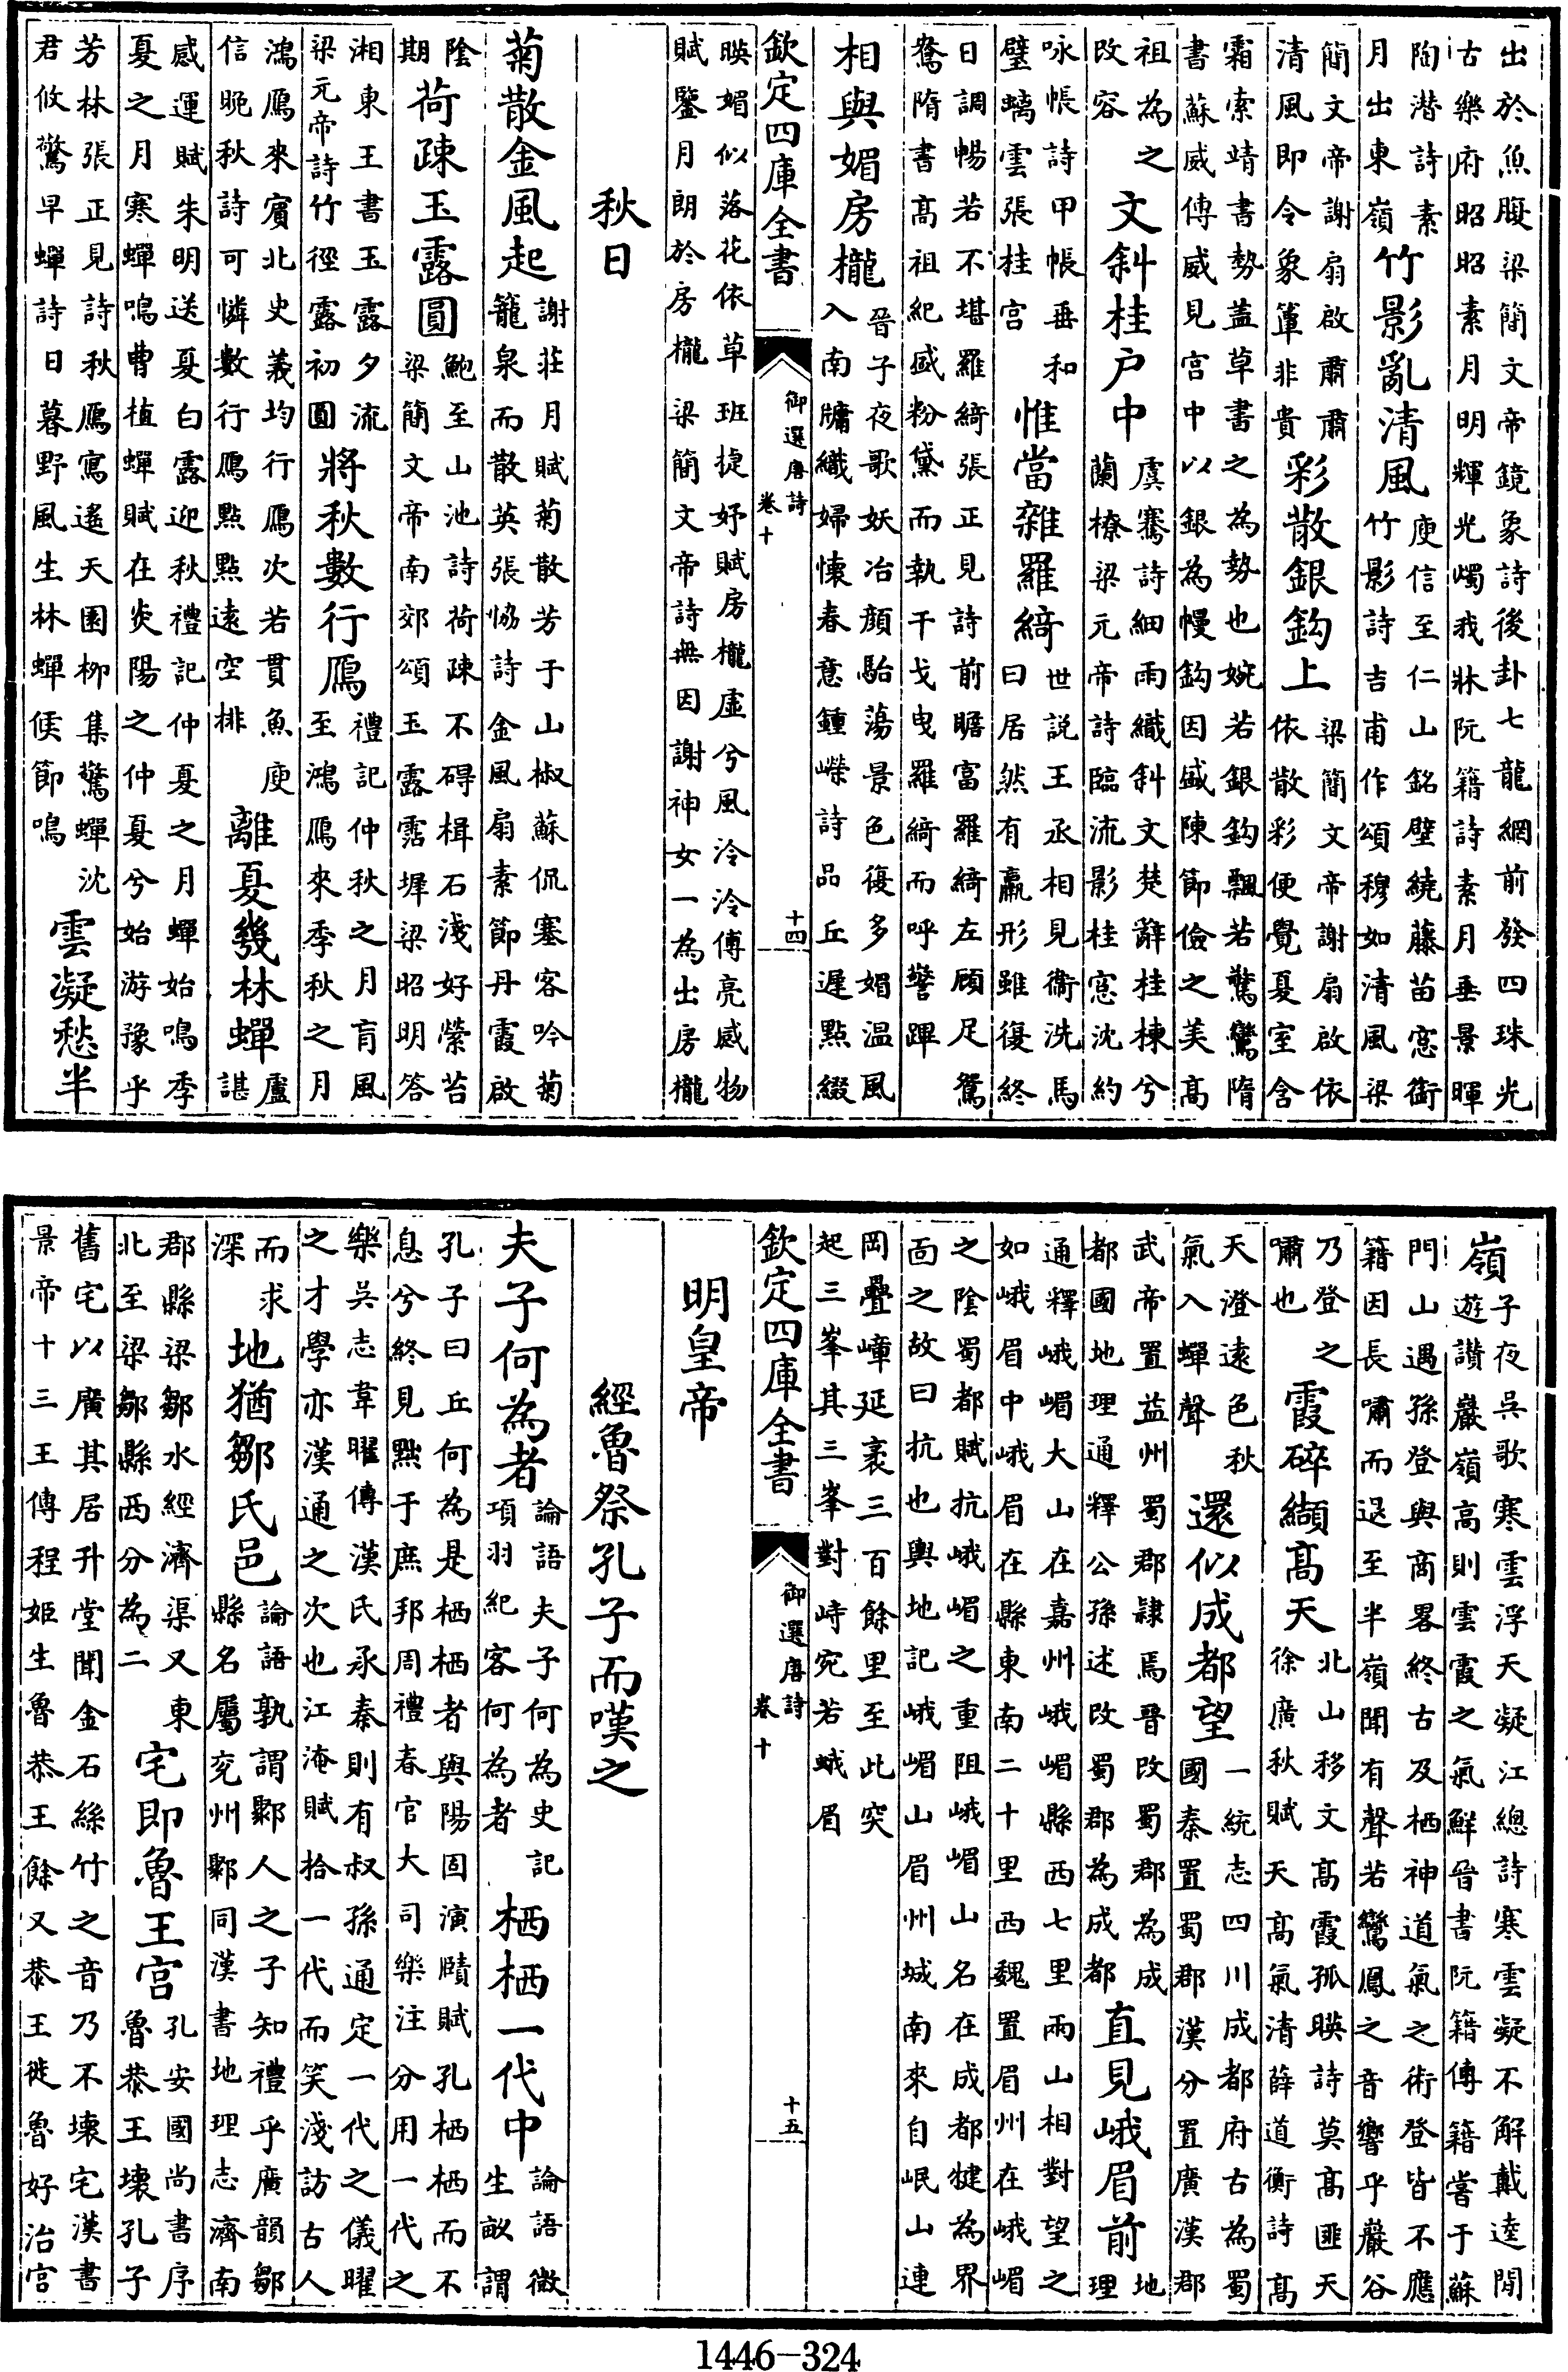 出於魚腹梁簡文帝鏡象詩後卦七龍網前發四珠光
古樂府昭昭素月明輝光燭我牀阮籍詩素月垂景暉
陶潛詩素
月出東嶺
竹影亂清風
庾信至仁山銘壁繞藤苗窓銜
竹影詩吉甫作頌穆如清風梁
簡文帝謝扇啟肅肅
清風即令象簟非貴
彩散銀鈎上
梁簡文帝謝扇啟依
依散彩便覺夏室含
霜索靖書勢蓋草書之為勢也婉若銀鈎飄若驚鸞隋
書蘇威傳威見宮中以銀為幔鈎因盛陳節儉之美高
祖為之
改容
文斜桂户中
虞騫詩細雨織斜文楚辭桂棟兮
蘭橑梁元帝詩臨流影桂窓沈約
咏帳詩甲帳垂和
璧螭雲張桂宮
惟當雜羅綺
世説王丞相見衞洗馬
曰居然有羸形雖復終
日調暢若不堪羅綺張正見詩前瞻富羅綺左顧足鴛
鴦隋書高祖紀盛粉黛而執干戈曳羅綺而呼警蹕
相與媚房櫳
晉子夜歌妖冶顔駘蕩景色復多媚温風
入南牖織婦懷春意鍾嶸詩品丘遲點綴
欽定四庫全書
御選唐詩
卷十
十四
暎媚似落花依草 班捷妤賦房櫳虛兮風泠泠傅亮感物
賦鑒月朗於房櫳 梁簡文帝詩無因謝神女一為出房櫳
秋日
菊散金風起
謝莊月賦菊散芳于山椒蘇侃塞客吟菊
籠泉而散英張協詩金風扇素節丹霞啟
陰
期
荷疎玉露圓
鮑至山池詩荷疎不碍楫石淺好縈苔
梁簡文帝南郊頌玉露霑墀梁昭明答
湘東王書玉露夕流
梁元帝詩竹徑露初圓
將秋數行鴈
禮記仲秋之月盲風
至鴻鴈來季秋之月
鴻鴈來賓北史義均行鴈次若貫魚庾
信晚秋詩可憐數行鴈點點遠空排
離夏幾林蟬
盧
諶
感運賦朱明送夏白露迎秋禮記仲夏之月蟬始鳴季
夏之月寒蟬鳴曹植蟬賦在炎陽之仲夏兮始游豫乎
芳林張正見詩秋鴈寫遙天園柳集驚蟬沈
君攸驚早蟬詩日暮野風生林蟬候節鳴
雲凝愁半
嶺
子夜吳歌寒雲浮天凝江總詩寒雲凝不解戴逵閒
遊讚巖嶺高則雲霞之氣鮮晉書阮籍傳籍嘗于蘇
門山遇孫登與商畧終古及栖神道氣之術登皆不應
籍因長嘯而退至半嶺聞有聲若鸞鳳之音響乎巖谷
乃登之
嘯也
霞碎纈高天
北山移文高霞孤暎詩莫高匪天
徐廣秋賦天高氣清薛道衡詩高
天澄遠色秋
氣入蟬聲
還似成都望
一統志四川成都府古為蜀
國秦置蜀郡漢分置廣漢郡
武帝置益州蜀郡隷焉晉改蜀郡為成
都國地理通釋公孫述改蜀郡為成都
直見峨眉前
地
理
通釋峨嵋大山在嘉州峨嵋縣西七里兩山相對望之
如峨眉中峨眉在縣東南二十里西魏置眉州在峨嵋
之陰蜀都賦抗峨嵋之重阻峨嵋山名在成都犍為界
面之故曰抗也輿地記峨嵋山眉州城南來自岷山連
岡疊嶂延袤三百餘里至此突
起三峯其三峯對峙宛若蛾眉
欽定四庫全書
御選唐詩
卷十
十五
明皇帝
經魯祭孔子而嘆之
夫子何為者
論語夫子何為史記
項羽紀客何為者
栖栖一代中
論語微
生畝謂
孔子曰丘何為是栖栖者與陽固演賾賦孔栖栖而不
息兮終見黜于庶邦周禮春官大司樂注分用一代之
樂吳志韋曜傳漢氏承秦則有叔孫通定一代之儀曜
之才學亦漢通之次也江淹賦拾一代而笑淺訪古人
而求
深
地猶鄹氏邑
論語孰謂鄹人之子知禮乎廣韻鄒
縣名屬兖州鄹同漢書地理志濟南
郡縣梁鄒水經濟渠又東
北至梁鄒縣西分為二
宅即魯王宮
孔安國尚書序
魯恭王壞孔子
舊宅以廣其居升堂聞金石絲竹之音乃不壞宅漢書
景帝十三王傳程姬生魯恭王餘又恭王徙魯好治宫
1446-324